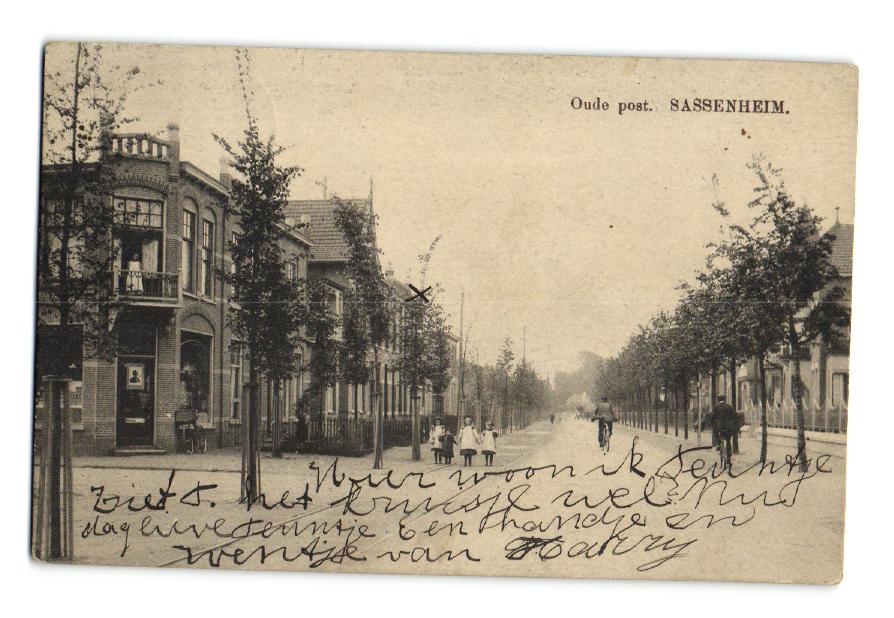 Oude post. SASSENHEIM.
Hier woon ik Teuntje
ziet T. het kruisje wel? Nu
dag lieve Teuntje Een handje en
zventje van Harry